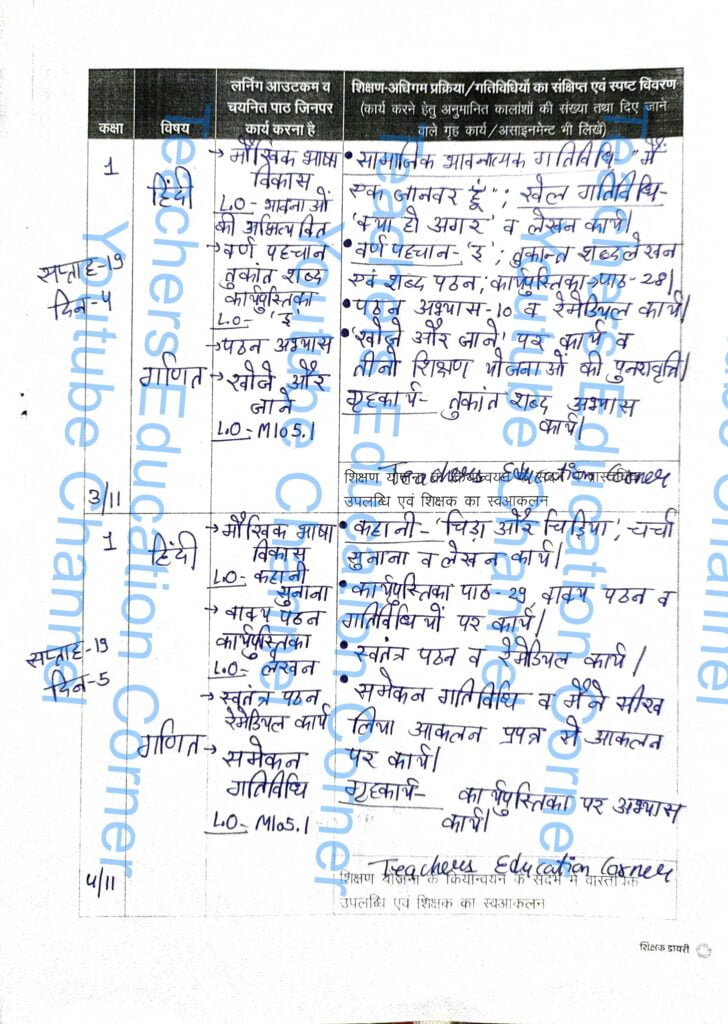 कक्षा
विषय
लर्निंग आउटकम व
चयनित पाठ जिनपर
कार्य करना है
शिक्षण-अधिगम प्रक्रिया/गतिविधियों का संक्षिप्त एवं स्पष्ट विवरण
(कार्य करने हेतु अनुमानित कालांशों की संख्या तथा दिए जाने
वाले गृह कार्य/असाइनमेन्ट भी लिखें)
1
सप्ताह-19
दिन-4
3/11
हिंदी
गणित
→ मौखिक भाषा
विकास
L.O- भावनाओं
की अभिव्यक्ति
→ वर्ण पहचान
तुकांत शब्द
कार्यपुस्तिका
L.O- 'इ'
→ पठन अभ्यास
→ खोजे और
जाने
L.O- M105.1
• सामाजिक भावनात्मक गतिविधि- "मैं
एक जानवर हूं"; खेल गतिविधि-
'क्या हो अगर' व लेखन कार्य।
• वर्ण पहचान- 'इ'; तुकान्त शब्द लेखन
एवं शब्द पठन; कार्यपुस्तिका→पाठ-28।
• पठन अभ्यास-10 व रेमेडियल कार्य।
• 'खोजे और जाने' पर कार्य व
तीनो शिक्षण योजनाओं की पुनरावृत्ति।
गृहकार्य- तुकांत शब्द अभ्यास
कार्य।
Teachers Education Corner
उपलब्धि एवं शिक्षक का स्वआकलन
1
सप्ताह-19
दिन-5
4/11
हिंदी
गणित
→ मौखिक भाषा
विकास
L.O- कहानी
सुनाना
→ वाक्य पठन
कार्यपुस्तिका
L.O- लेखन
→ स्वतंत्र पठन
रेमेडियल कार्य
→ समेकन
गतिविधि
L.O- M105.1
• कहानी- 'चिड़ा और चिड़िया', चर्चा
सुनाना व लेखन कार्य।
• कार्यपुस्तिका पाठ-29, वाक्य पठन व
गतिविधियों पर कार्य।
• स्वतंत्र पठन व रेमेडियल कार्य।
• समेकन गतिविधि व मैंने सीख
लिया आकलन प्रपत्र से आकलन
पर कार्य।
गृहकार्य- कार्यपुस्तिका पर अभ्यास
कार्य।
Teachers Education Corner
शिक्षण योजना के क्रियान्वयन के संदर्भ में वास्तविक
उपलब्धि एवं शिक्षक का स्वआकलन
शिक्षक डायरी
Teachers Education Corner
Youtube Channel
Teachers Education Corner
Youtube Channel